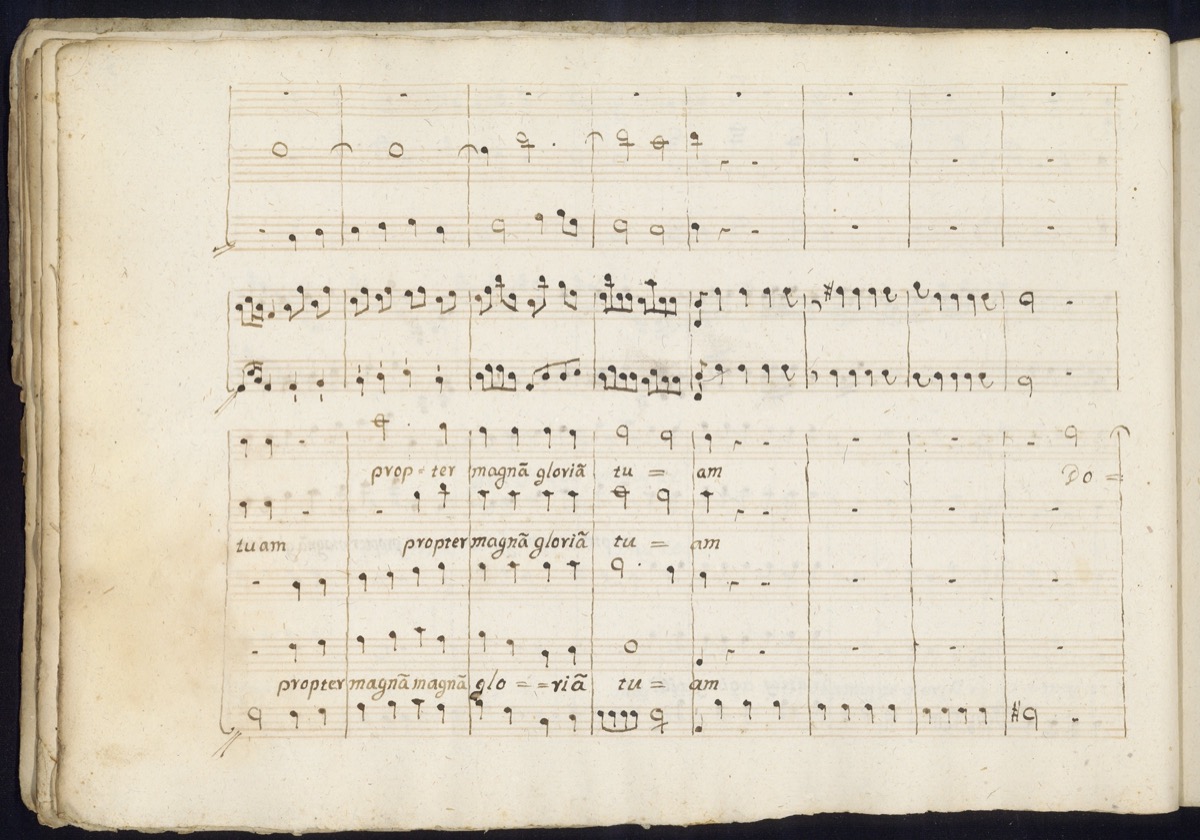 prop - ter magnã gloriã tu = am Do =
tuam propter magnã gloriã tu = am
propter magnã magnã glo = = riã tu = am